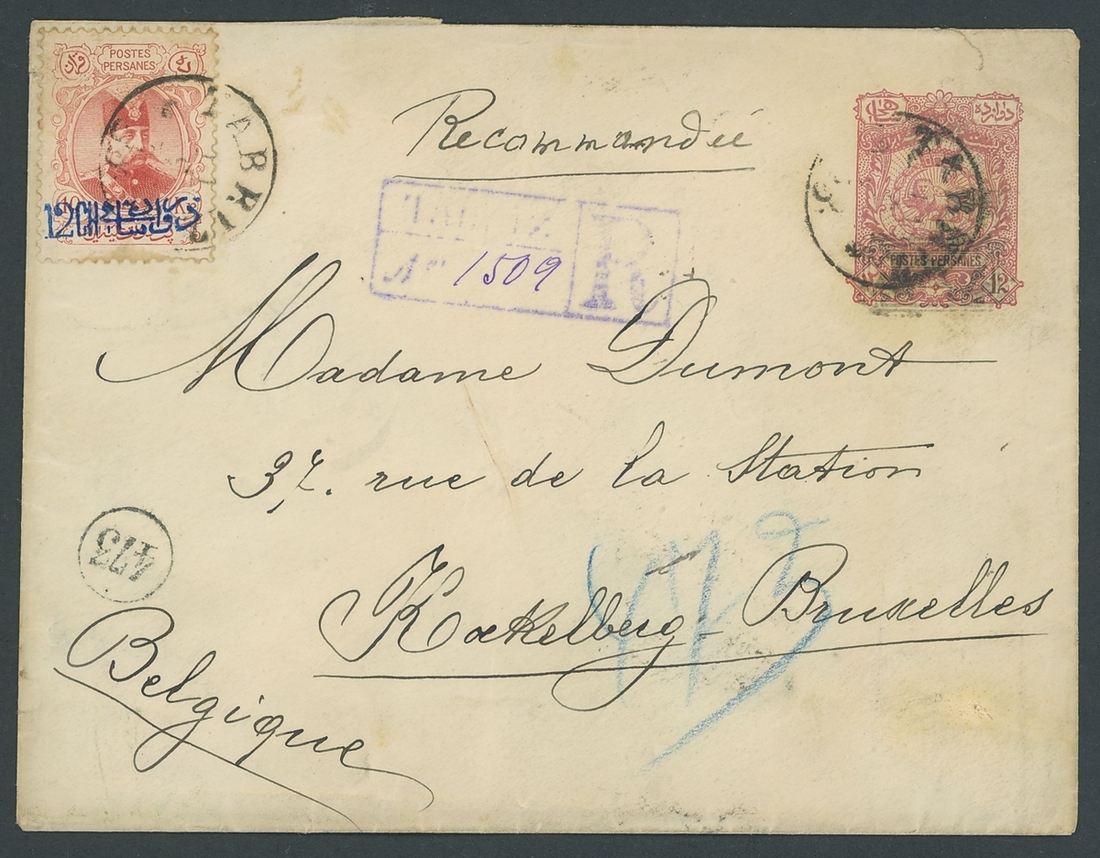 POSTES
PERSANES
12CH
TABRIZ
Recommandée
TABRIZ
POSTES PERSANES
12
Tabriz R
No 1509
Madame Dumont
37. rue de la Station
Koekelberg-Bruxelles
Belgique
473